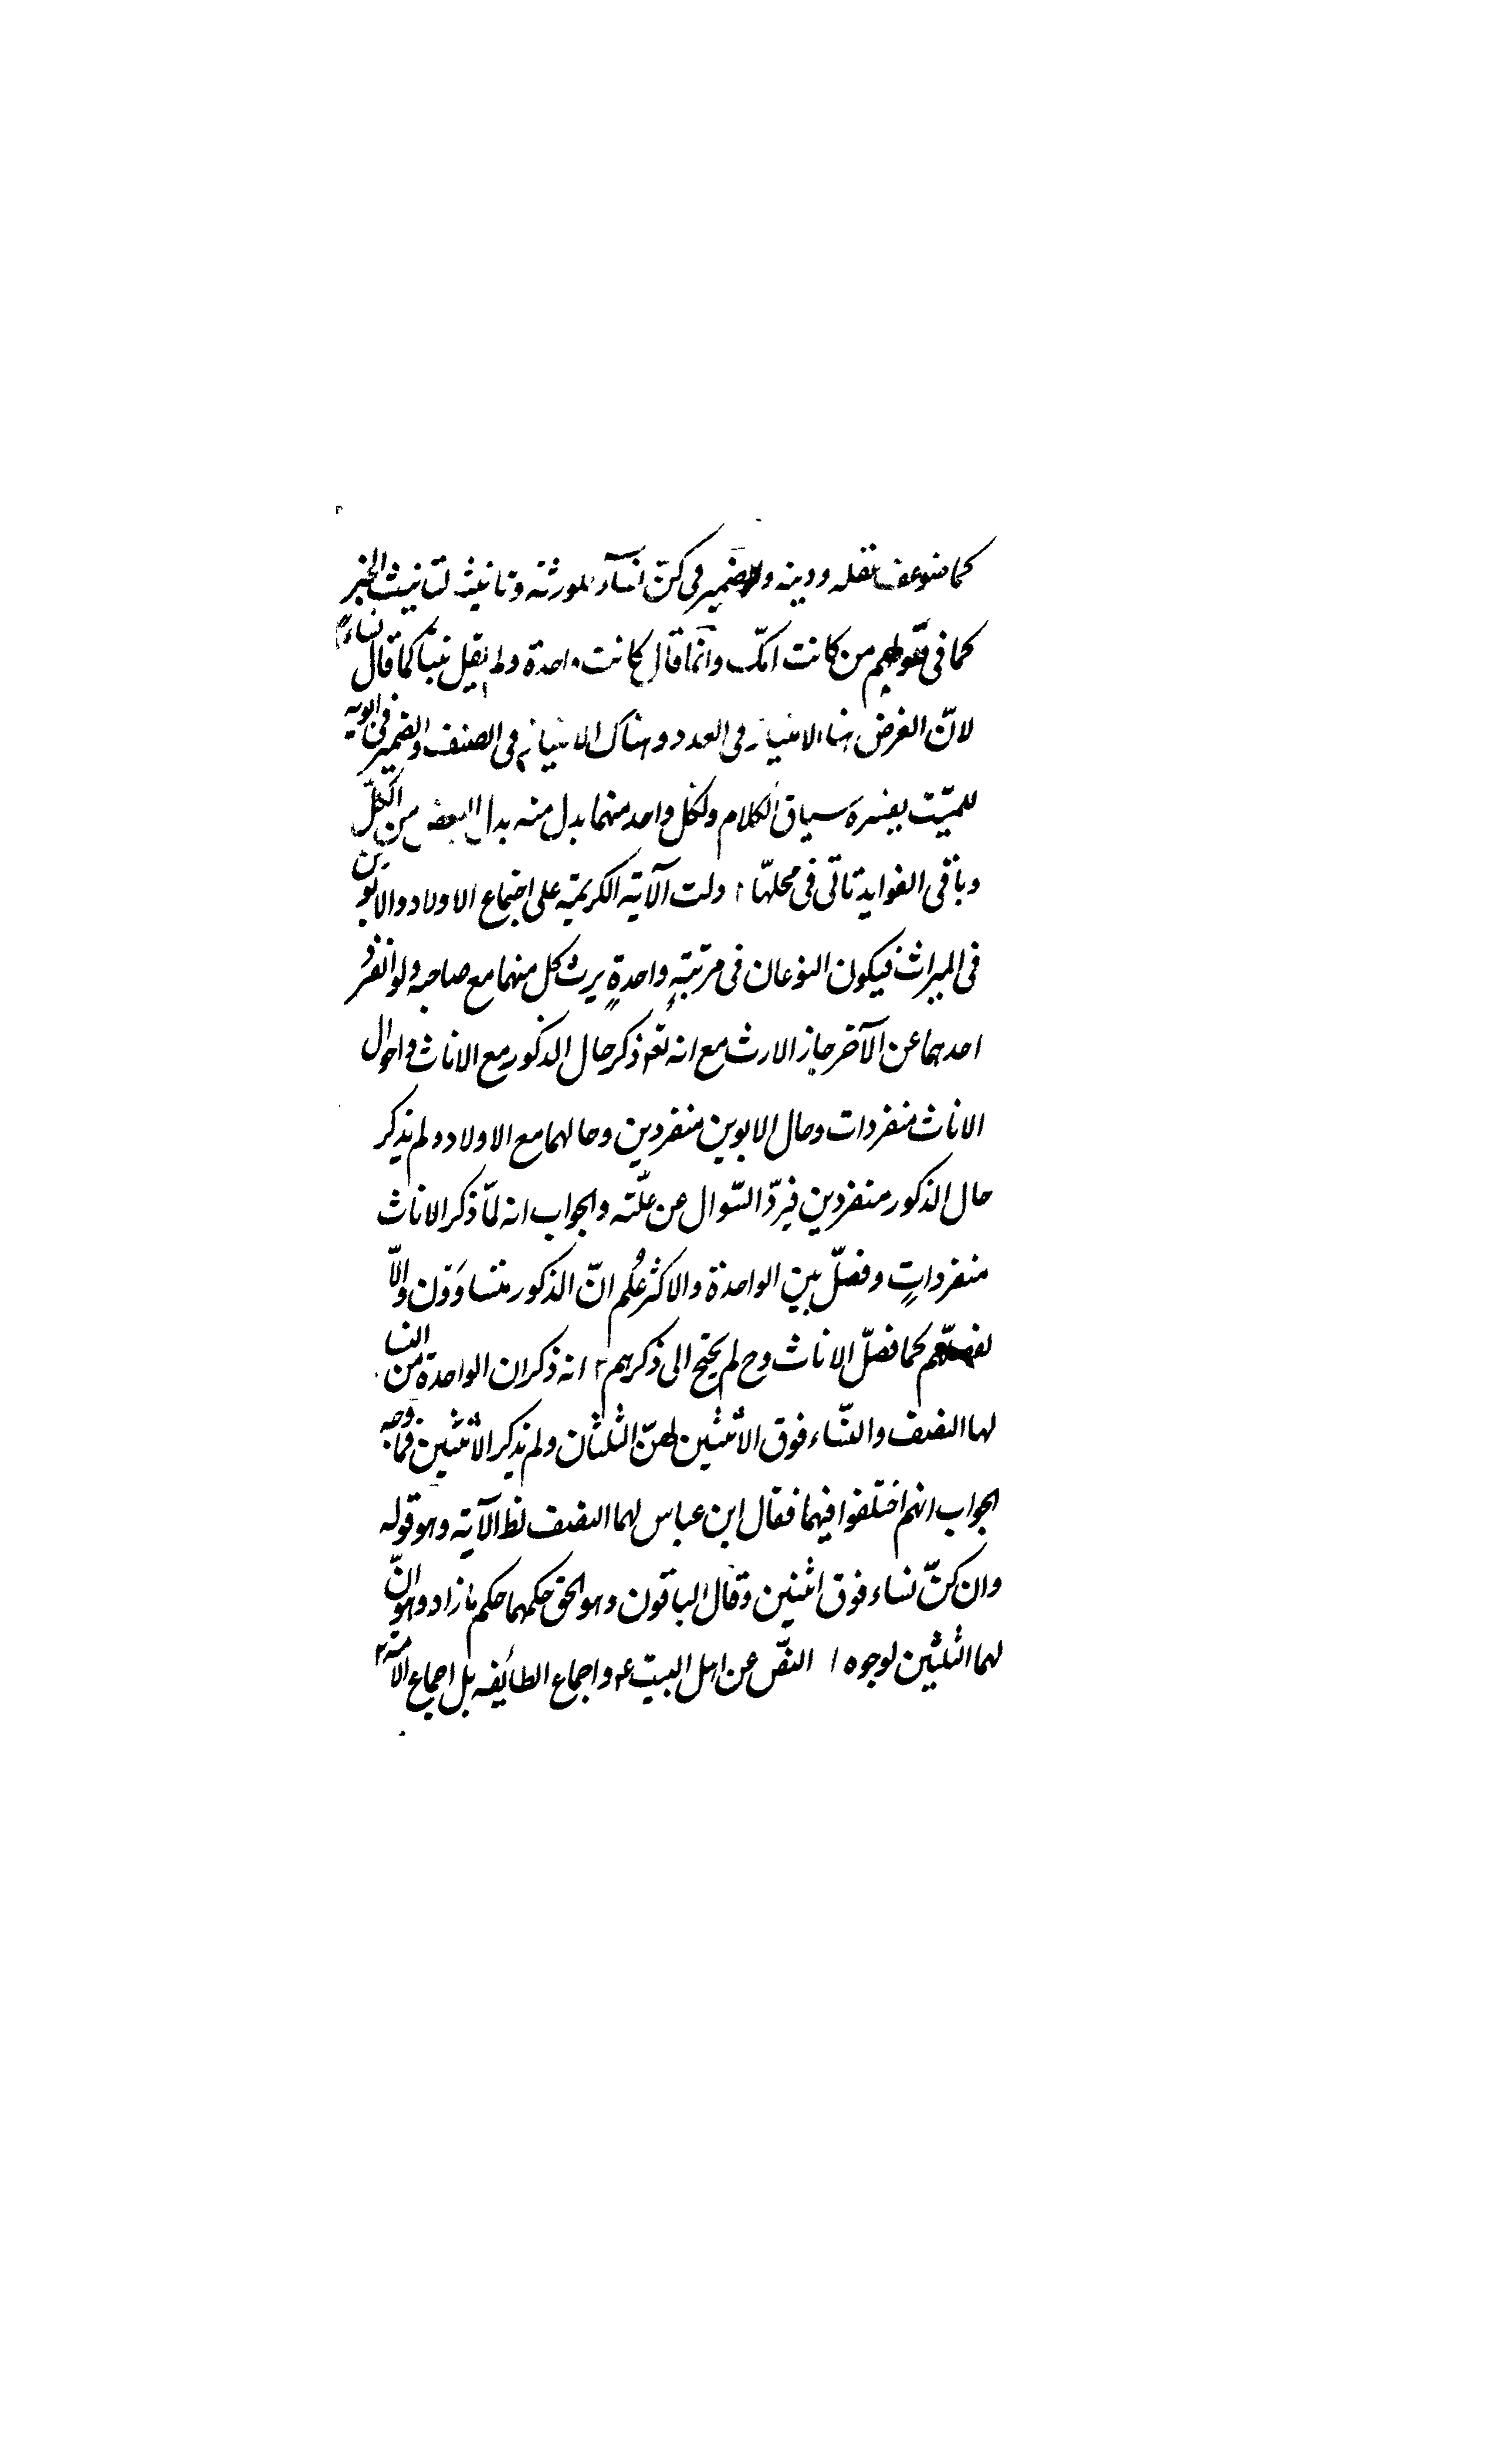 كما ضوعف عقله ودينه والضمير في كنّ نسآء للورثة وتانيثه لتانيث الخبر
كما في قولهم من كانت امّك وانّما قال كانت واحدة ولم يقل بنتاً كما قال نساءً
لانّ الغرض هنا الامتياز في العدد وهناك الامتياز في الصنف والضمير في ابويه
للميّت يفسره سياق الكلام ولكل واحد منهما بدل منه بدل البعض من الكلّ
وباقي الفوايد تاتي في محلّها ١ دلت الآية الكريمة على اجتماع الاولاد والابوين
في الميراث فيكون النوعان في مرتبةٍ واحدةٍ يرث كل منهما مع صاحبه ولو انفرد
احدهما عن الآخر حاز الارث مع انه تعم ذكر حال الذكور مع الاناث واحوال
الاناث منفردات وحال الابوين منفردين وحالهما مع الاولاد ولم يذكر
حال الذكور منفردين فيردّ السّوال عن علّته والجواب انه لمّا ذكر الاناث
منفرداتٍ وفصّل بين الواحدة والاكثر عُلم انّ الذكور متساوَوْن والّا
لفصّلهم كما فصّل الاناث وح لم يحتج الى ذكرهم ٢ انه ذكر ان الواحدة من النسا
لها النصف والنّساء فوق الاثنتين لهنّ الثلثان ولم يذكر الاثنتين فما وجه
الجواب انهم اختلفوا فيهما فقال ابن عباس لهما النصف لظ الآية وهو قوله
وان كنّ نساء فوق اثنتين وقال الباقون وهو الحق حكمهما حكم ما زاد وهو انّ
لهما الثلثين لوجوه ١ النصّ عن اهل البيت عم واجماع الطائفه بل اجماع الامة ٢